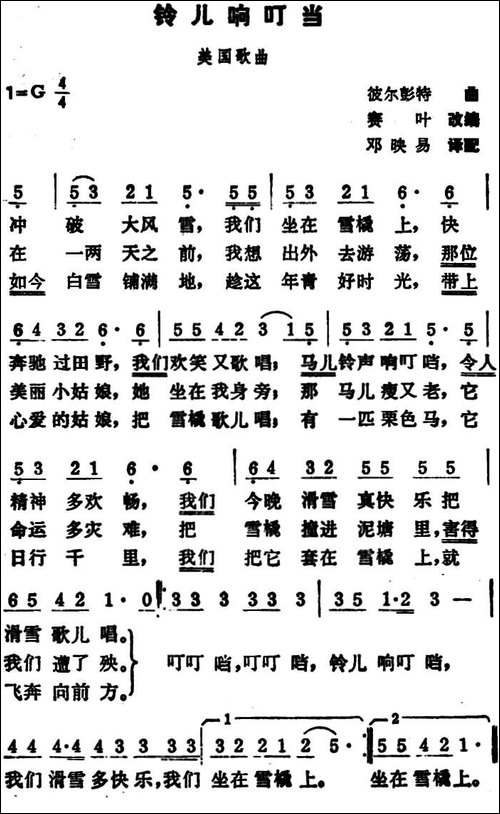 铃儿响叮当
美国歌曲
1=G 4/4
彼尔彭特 曲
赛 叶 改编
邓映易 译配
5 | 5 3 2 1 5· 5 5 | 5 3 2 1 6· 6 |
冲 破 大风 雪, 我们 坐在 雪橇 上, 快
在 一两 天之 前, 我想 出外 去游 荡, 那位
如今 白雪 铺满 地, 趁这 年青 好时 光, 带上
6 4 3 2 6· 6 | 5 5 4 2 3 1 5 | 5 3 2 1 5· 5 |
奔驰 过田 野, 我们 欢笑 又歌 唱; 马儿 铃声 响叮 当, 令人
美丽 小姑 娘, 她 坐在 我身 旁; 那 马儿 瘦又 老, 它
心爱 的姑 娘, 把 雪橇 歌儿 唱; 有 一匹 栗色 马, 它
5 3 2 1 6· 6 | 6 4 3 2 5 5 5 5 |
精神 多欢 畅, 我们 今晚 滑雪 真快 乐把
命运 多灾 难, 把 雪橇 撞进 泥塘 里, 害得
日行 千 里, 我们 把它 套在 雪橇 上, 就
6 5 4 2 1· 0 :| 3 3 3 3 3 3 | 3 5 1·2 3 — |
滑雪 歌儿 唱。
我们 遭了 殃。 叮叮 当, 叮叮 当, 铃儿 响叮 当,
飞奔 向前 方。
1 2
4 4 4·4 4 3 3 3 3 | 3 2 2 1 2 5· :| 5 5 4 2 1· ||
我们 滑雪 多快 乐, 我们 坐在 雪橇 上。 坐在 雪橇 上。